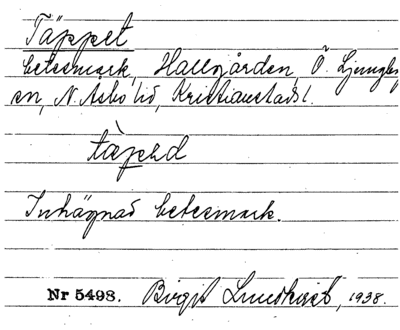 Täppet
betesmark, Hallgården, Ö. Ljungby
sn, N. Åsbo hd, Kristianstads l.
tàpəd
Inhägnad betesmark.
Nr 5498. Birgit Lundkvist, 1938.